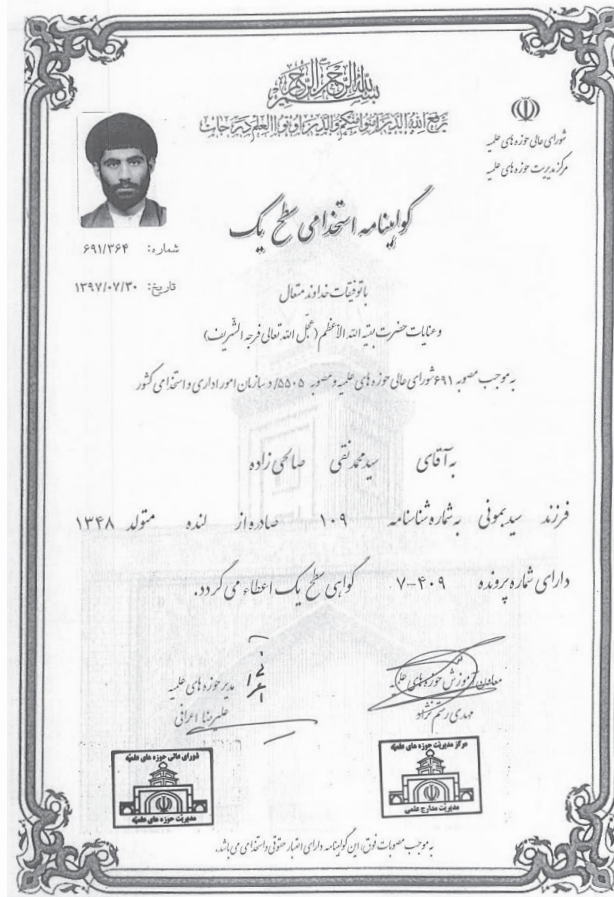 بسم الله الرحمن الرحیم
یرفع الله الذین آمنوا منکم والذین اوتوا العلم درجات
شورای عالی حوزه های علمیه
مرکز مدیریت حوزه های علمیه
گواهینامه استخدامی سطح یک
شماره: ۶۹۱/۳۶۴
تاریخ: ۱۳۹۷/۰۷/۳۰
با توفیقات خداوند متعال
و عنایات حضرت بقیة الله الأعظم (عجّل الله تعالی فرجه الشریف)
به موجب مصوبه ۶۹۱ شورای عالی حوزه های علمیه و مصوبه ۵۵۰۵/د سازمان امور اداری و استخدامی کشور
به آقای سیدمحمدنقی صالحی زاده
فرزند سیدبمونی به شماره شناسنامه ۱۰۹ صادره از لنده متولد ۱۳۴۸
دارای شماره پرونده ۴۰۹-۷ گواهی سطح یک اعطاء می گردد.
معاون آموزش حوزه های علمیه
مهدی رستم نژاد
مدیر حوزه های علمیه
علیرضا اعرافی
مرکز مدیریت حوزه های علمیه
مدیریت مدارج علمی
شورای عالی حوزه های علمیه
مدیریت حوزه های علمیه
به موجب مصوبات فوق، این گواهینامه دارای اعتبار حقوقی و استخدامی می باشد.